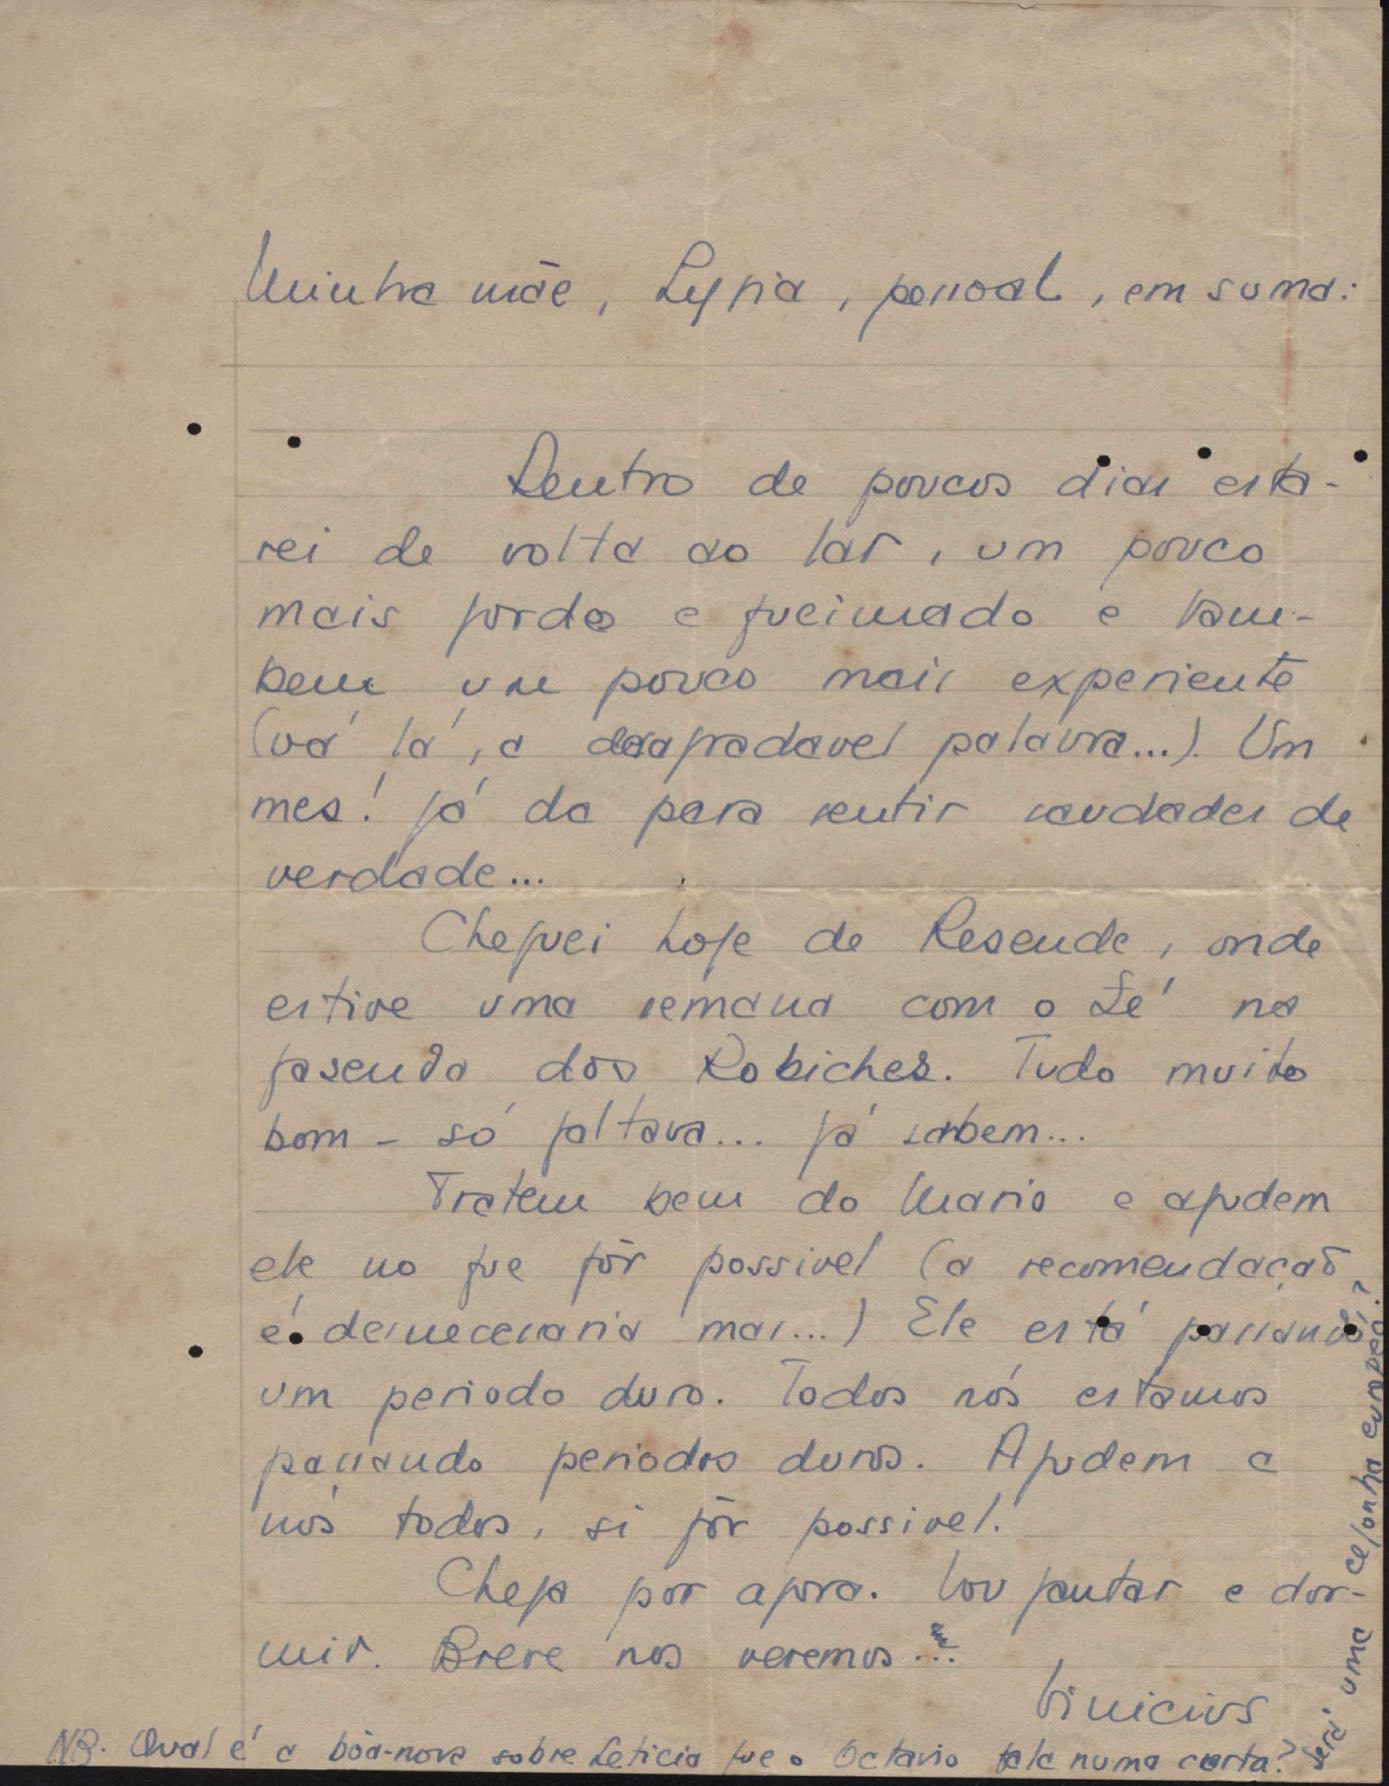 Minha mãe, Lygia, pessoal, em suma:
Dentro de poucos dias esta-
rei de volta ao lar, um pouco
mais gordo e queimado e tam-
bem um pouco mais experiente
(vá lá, a desagradavel palavra...). Um
mes! Já da para sentir saudades de
verdade...
Cheguei hoje de Resende, onde
estive uma semana com o Zé na
fasenda dos Robiches. Tudo muito
bom - só faltava... já sabem...
Tratem bem do Mario e ajudem
ele no que fôr possivel (a recomendação
é desnecessaria mas...) Ele está passando
um periodo duro. Todos nós estamos
passando periodos duros. Ajudem a
nós todos, si fôr possivel.
Chega por agora. Vou jantar e dor-
mir. Breve nos veremos...
Vinicius
NB. Qual é a bôa-nova sobre Leticia que o Octavio fala numa carta?
Será uma cegonha europea?